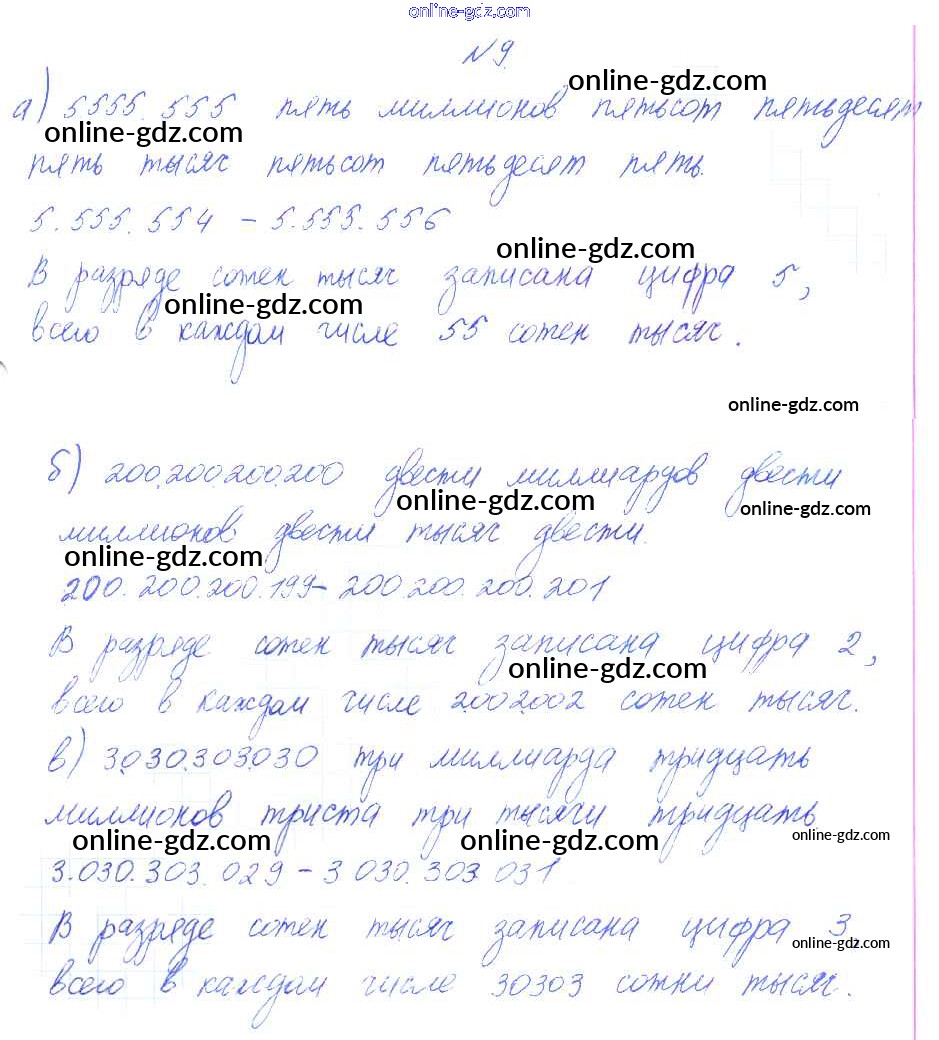 online-gdz.com
№9.
online-gdz.com
а) 5555.555 пять миллионов пятьсот пятьдесят
online-gdz.com
пять тысяч пятьсот пятьдесят пять.
5.555.554 - 5.555.556
online-gdz.com
В разряде сотен тысяч записана цифра 5,
online-gdz.com
всего в каждом числе 55 сотен тысяч.
online-gdz.com
б) 200.200.200.200 двести миллиардов двести
online-gdz.com online-gdz.com
миллионов двести тысяч двести.
online-gdz.com
200.200.200.199- 200.200.200.201
В разряде сотен тысяч записана цифра 2,
online-gdz.com
всего в каждом числе 2.002.002 сотен тысяч.
в) 3.030.303.030 три миллиарда тридцать
миллионов триста три тысячи тридцать
online-gdz.com online-gdz.com online-gdz.com
3.030.303.029 - 3 030.303.031
В разряде сотен тысяч записана цифра 3,
online-gdz.com
всего в каждом числе 30303 сотни тысяч.